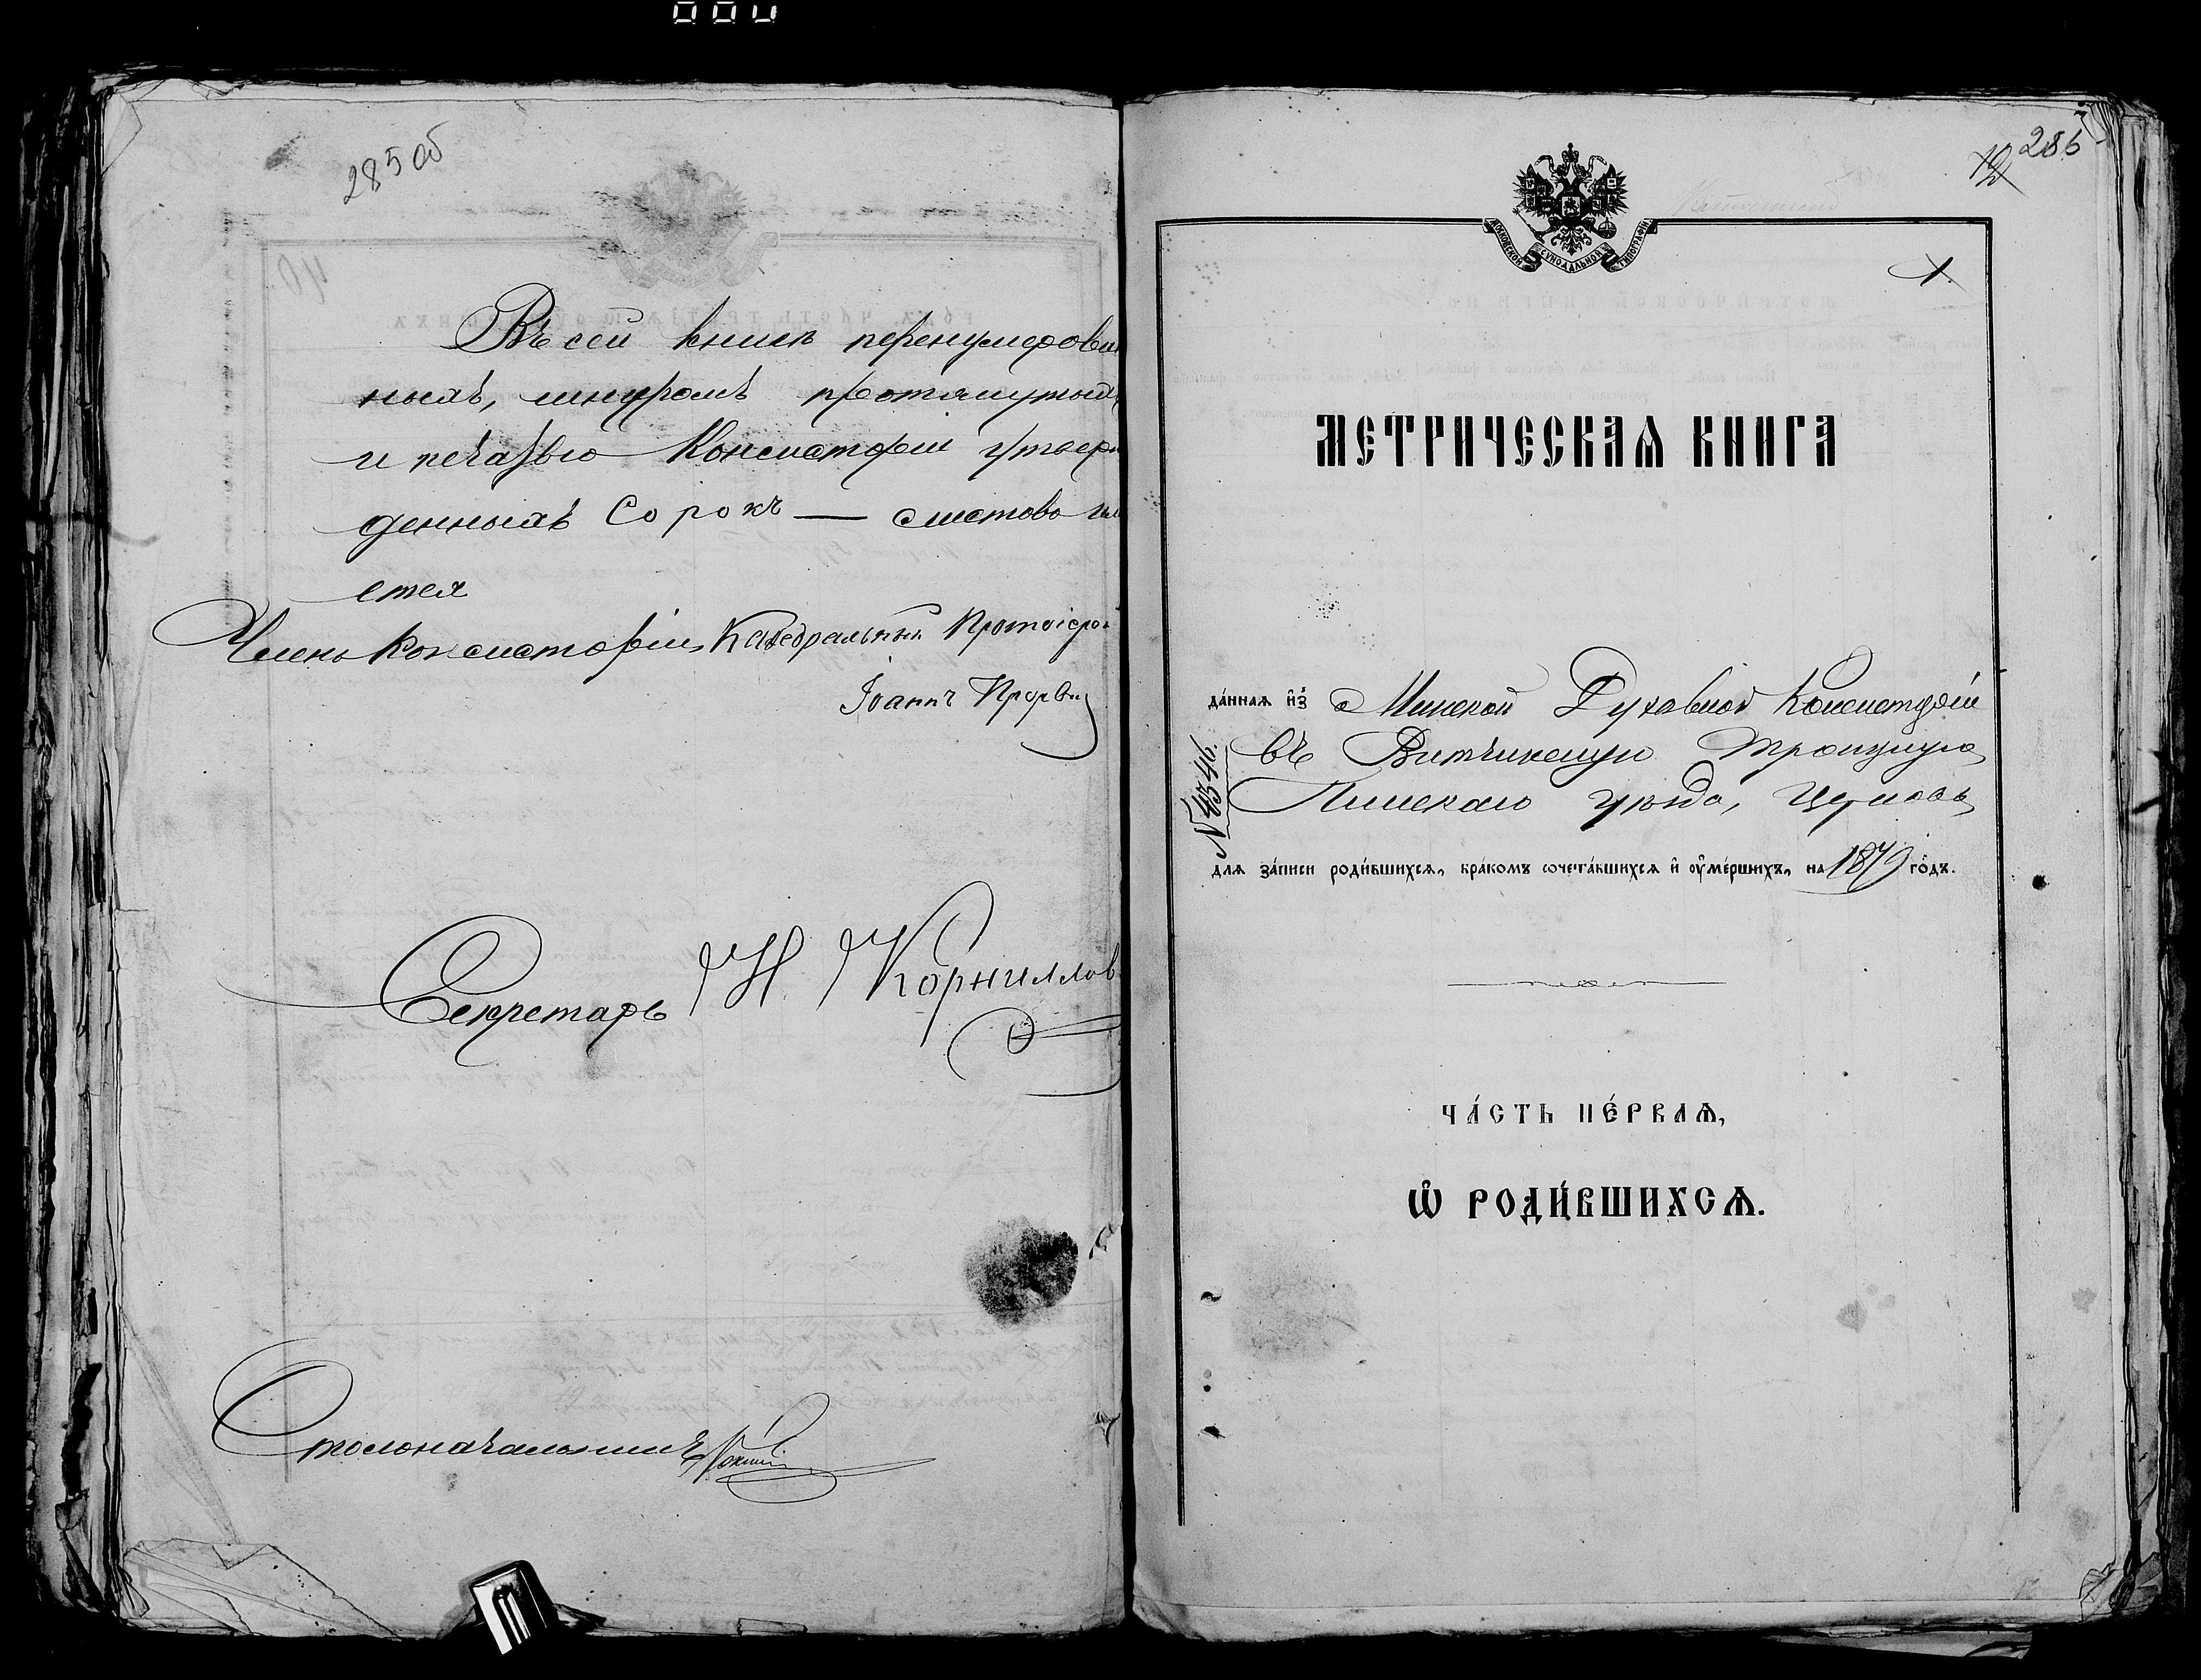 285 об
Въ сей книгѣ перенумерован
ныхъ, шнуромъ протянутых
и печатью Консисторіи утверж
денныхъ Сорокъ — листовъ име
ется
Членъ Консисторіи, Каѳедральный Протоіерей
Іоаннъ
Секретарь Н Корнилловъ
Столоначальникъ
12 286
МОСКОВСКОЙ СѴНОДАЛЬНОЙ ТИПОГРАФІИ
1
МЕТРИЧЕСКАѦ КНИГА
да́ннаѧ и҆з̾ Минской Духовной Консисторіи
въ Витчинскую Троицкую
Пинскаго уѣзда, Церковь
№ 4346.
для за́писи роди́вшихсѧ, бра́комъ сочета́вшихсѧ и҆ ᲂу҆ме́ршихъ, на 1879 го́дъ.
ЧА́СТЬ ПЕ́РВАѦ,
Ѡ҆ РОДИ́ВШИХСѦ.